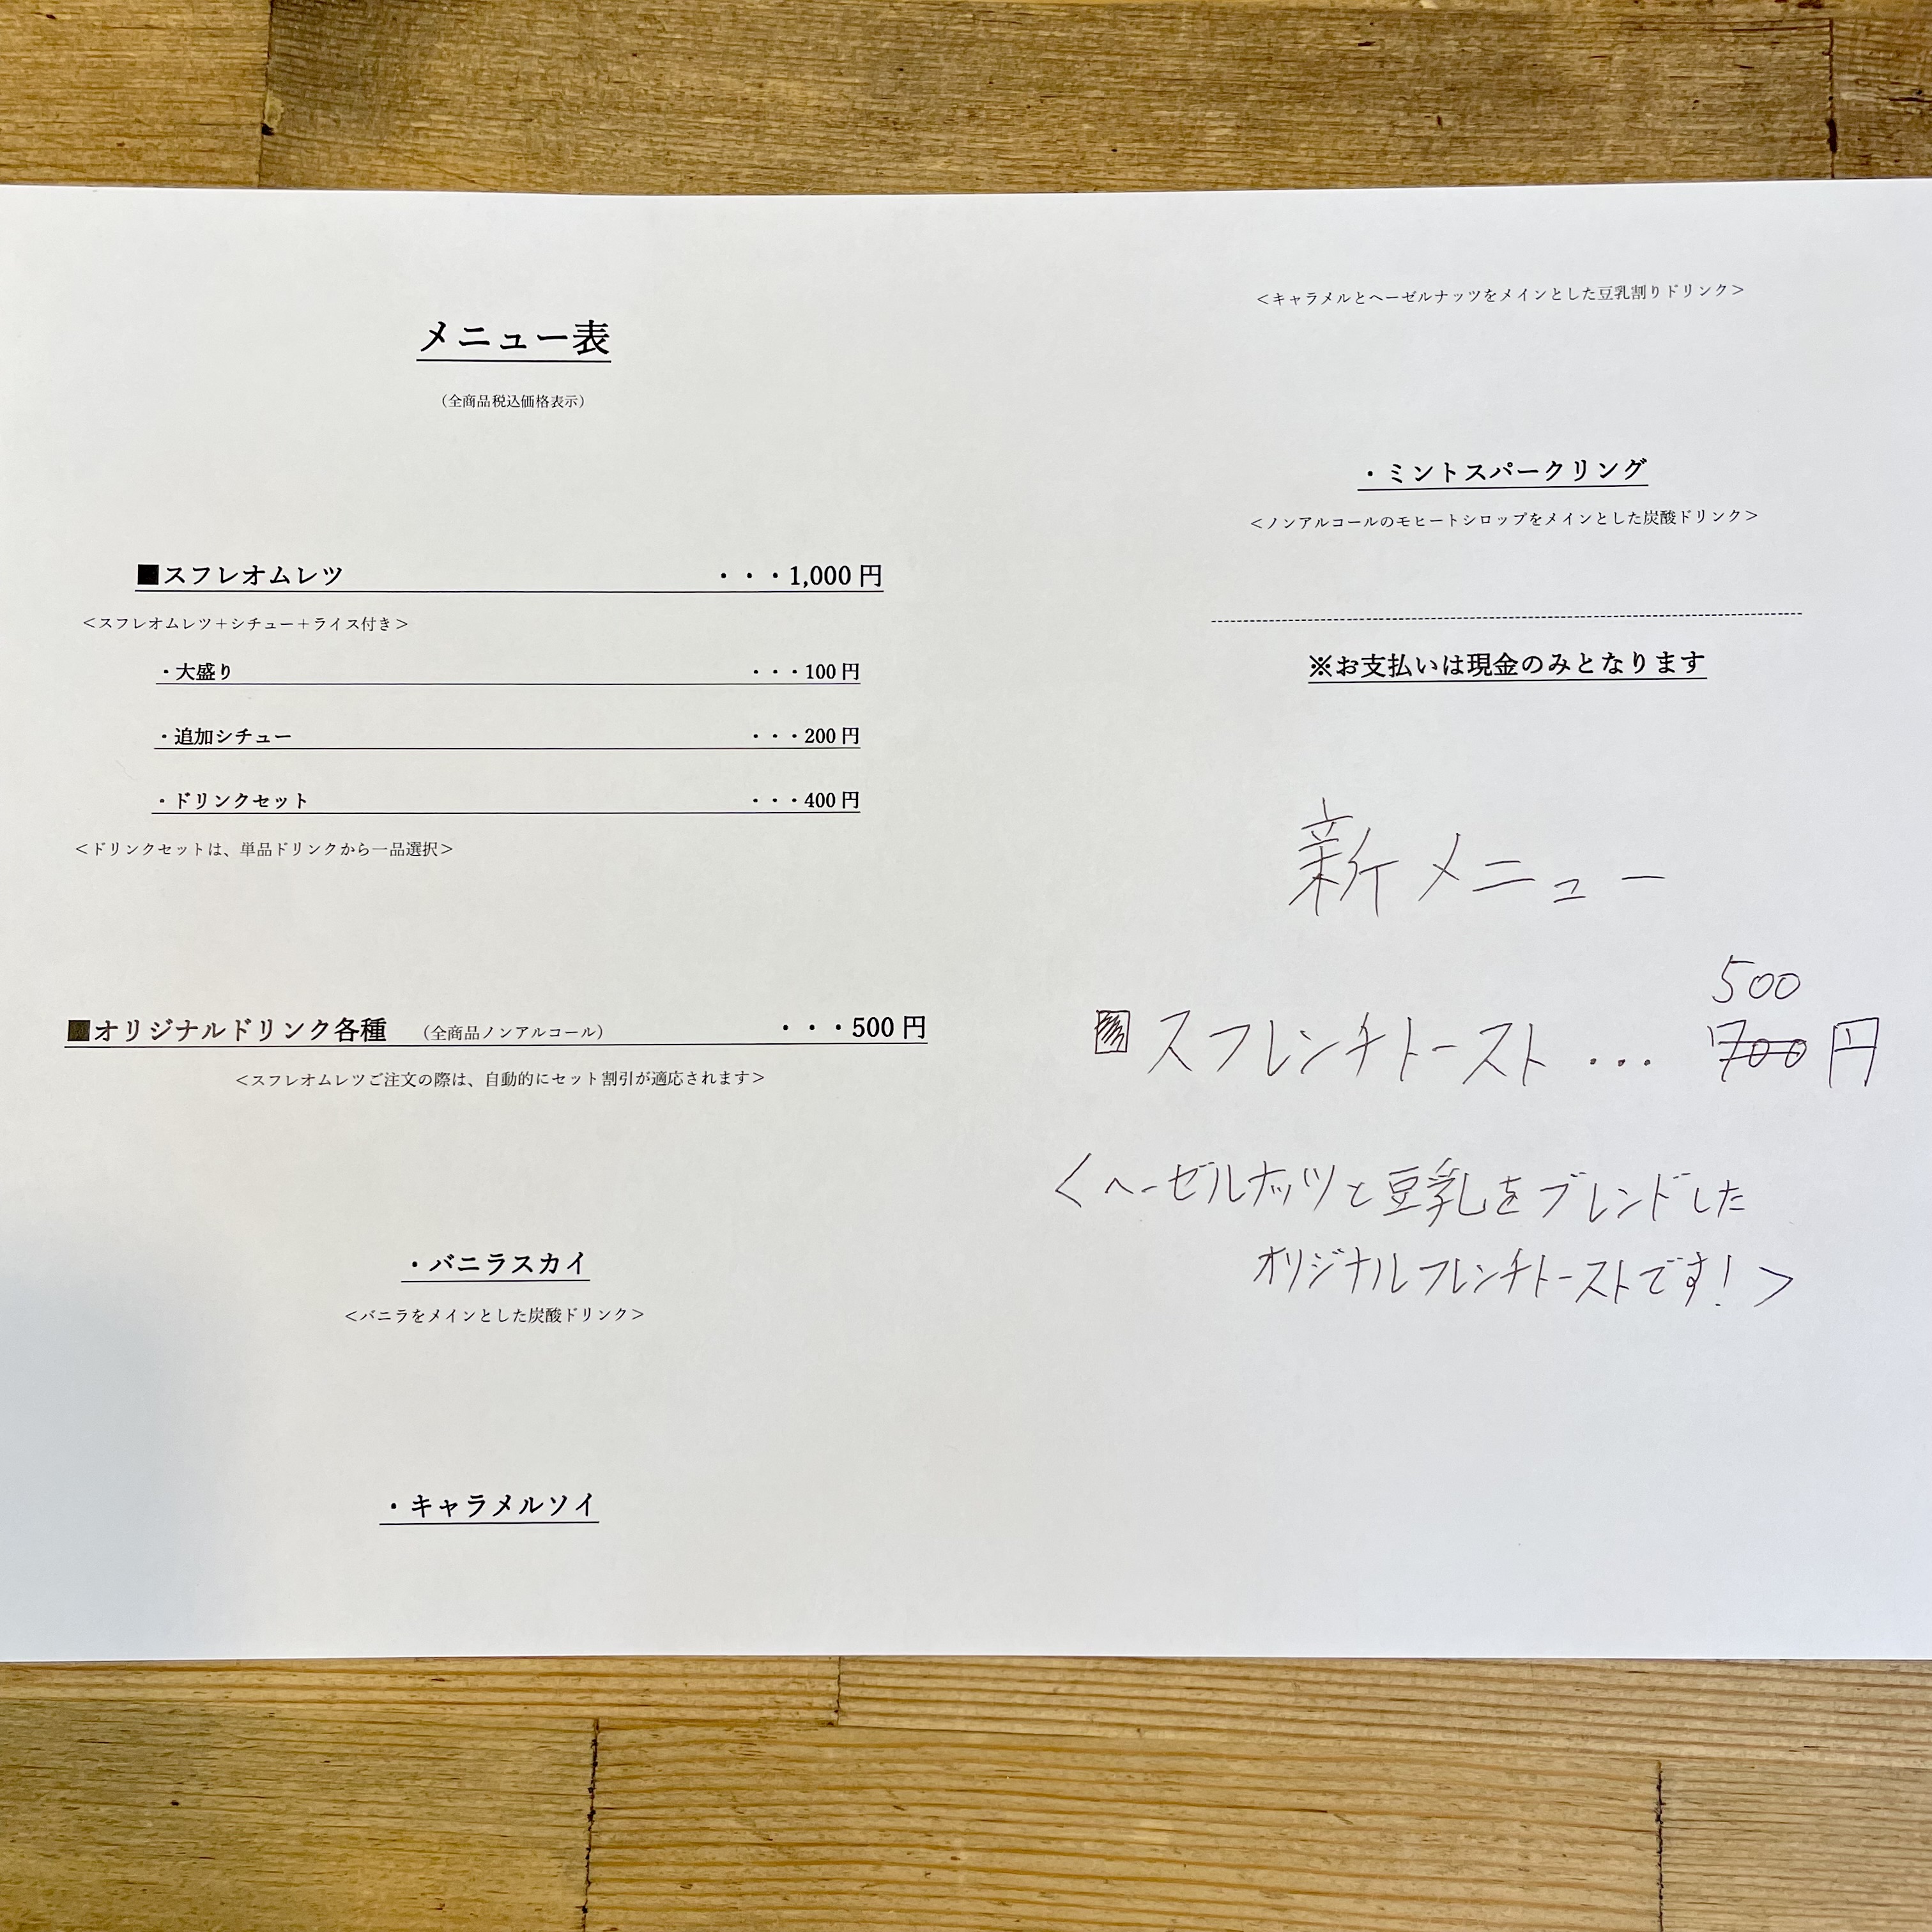 メニュー表
（全商品税込価格表示）
■スフレオムレツ ・・・1,000 円
＜スフレオムレツ＋シチュー＋ライス付き＞
・大盛り ・・・100 円
・追加シチュー ・・・200 円
・ドリンクセット ・・・400 円
＜ドリンクセットは、単品ドリンクから一品選択＞
■オリジナルドリンク各種 （全商品ノンアルコール） ・・・500 円
＜スフレオムレツご注文の際は、自動的にセット割引が適応されます＞
・バニラスカイ
＜バニラをメインとした炭酸ドリンク＞
・キャラメルソイ
＜キャラメルとヘーゼルナッツをメインとした豆乳割りドリンク＞
・ミントスパークリング
＜ノンアルコールのモヒートシロップをメインとした炭酸ドリンク＞
※お支払いは現金のみとなります
新メニュー
500
■スフレンチトースト ... 700 円
＜ヘーゼルナッツと豆乳をブレンドした
オリジナルフレンチトーストです！＞